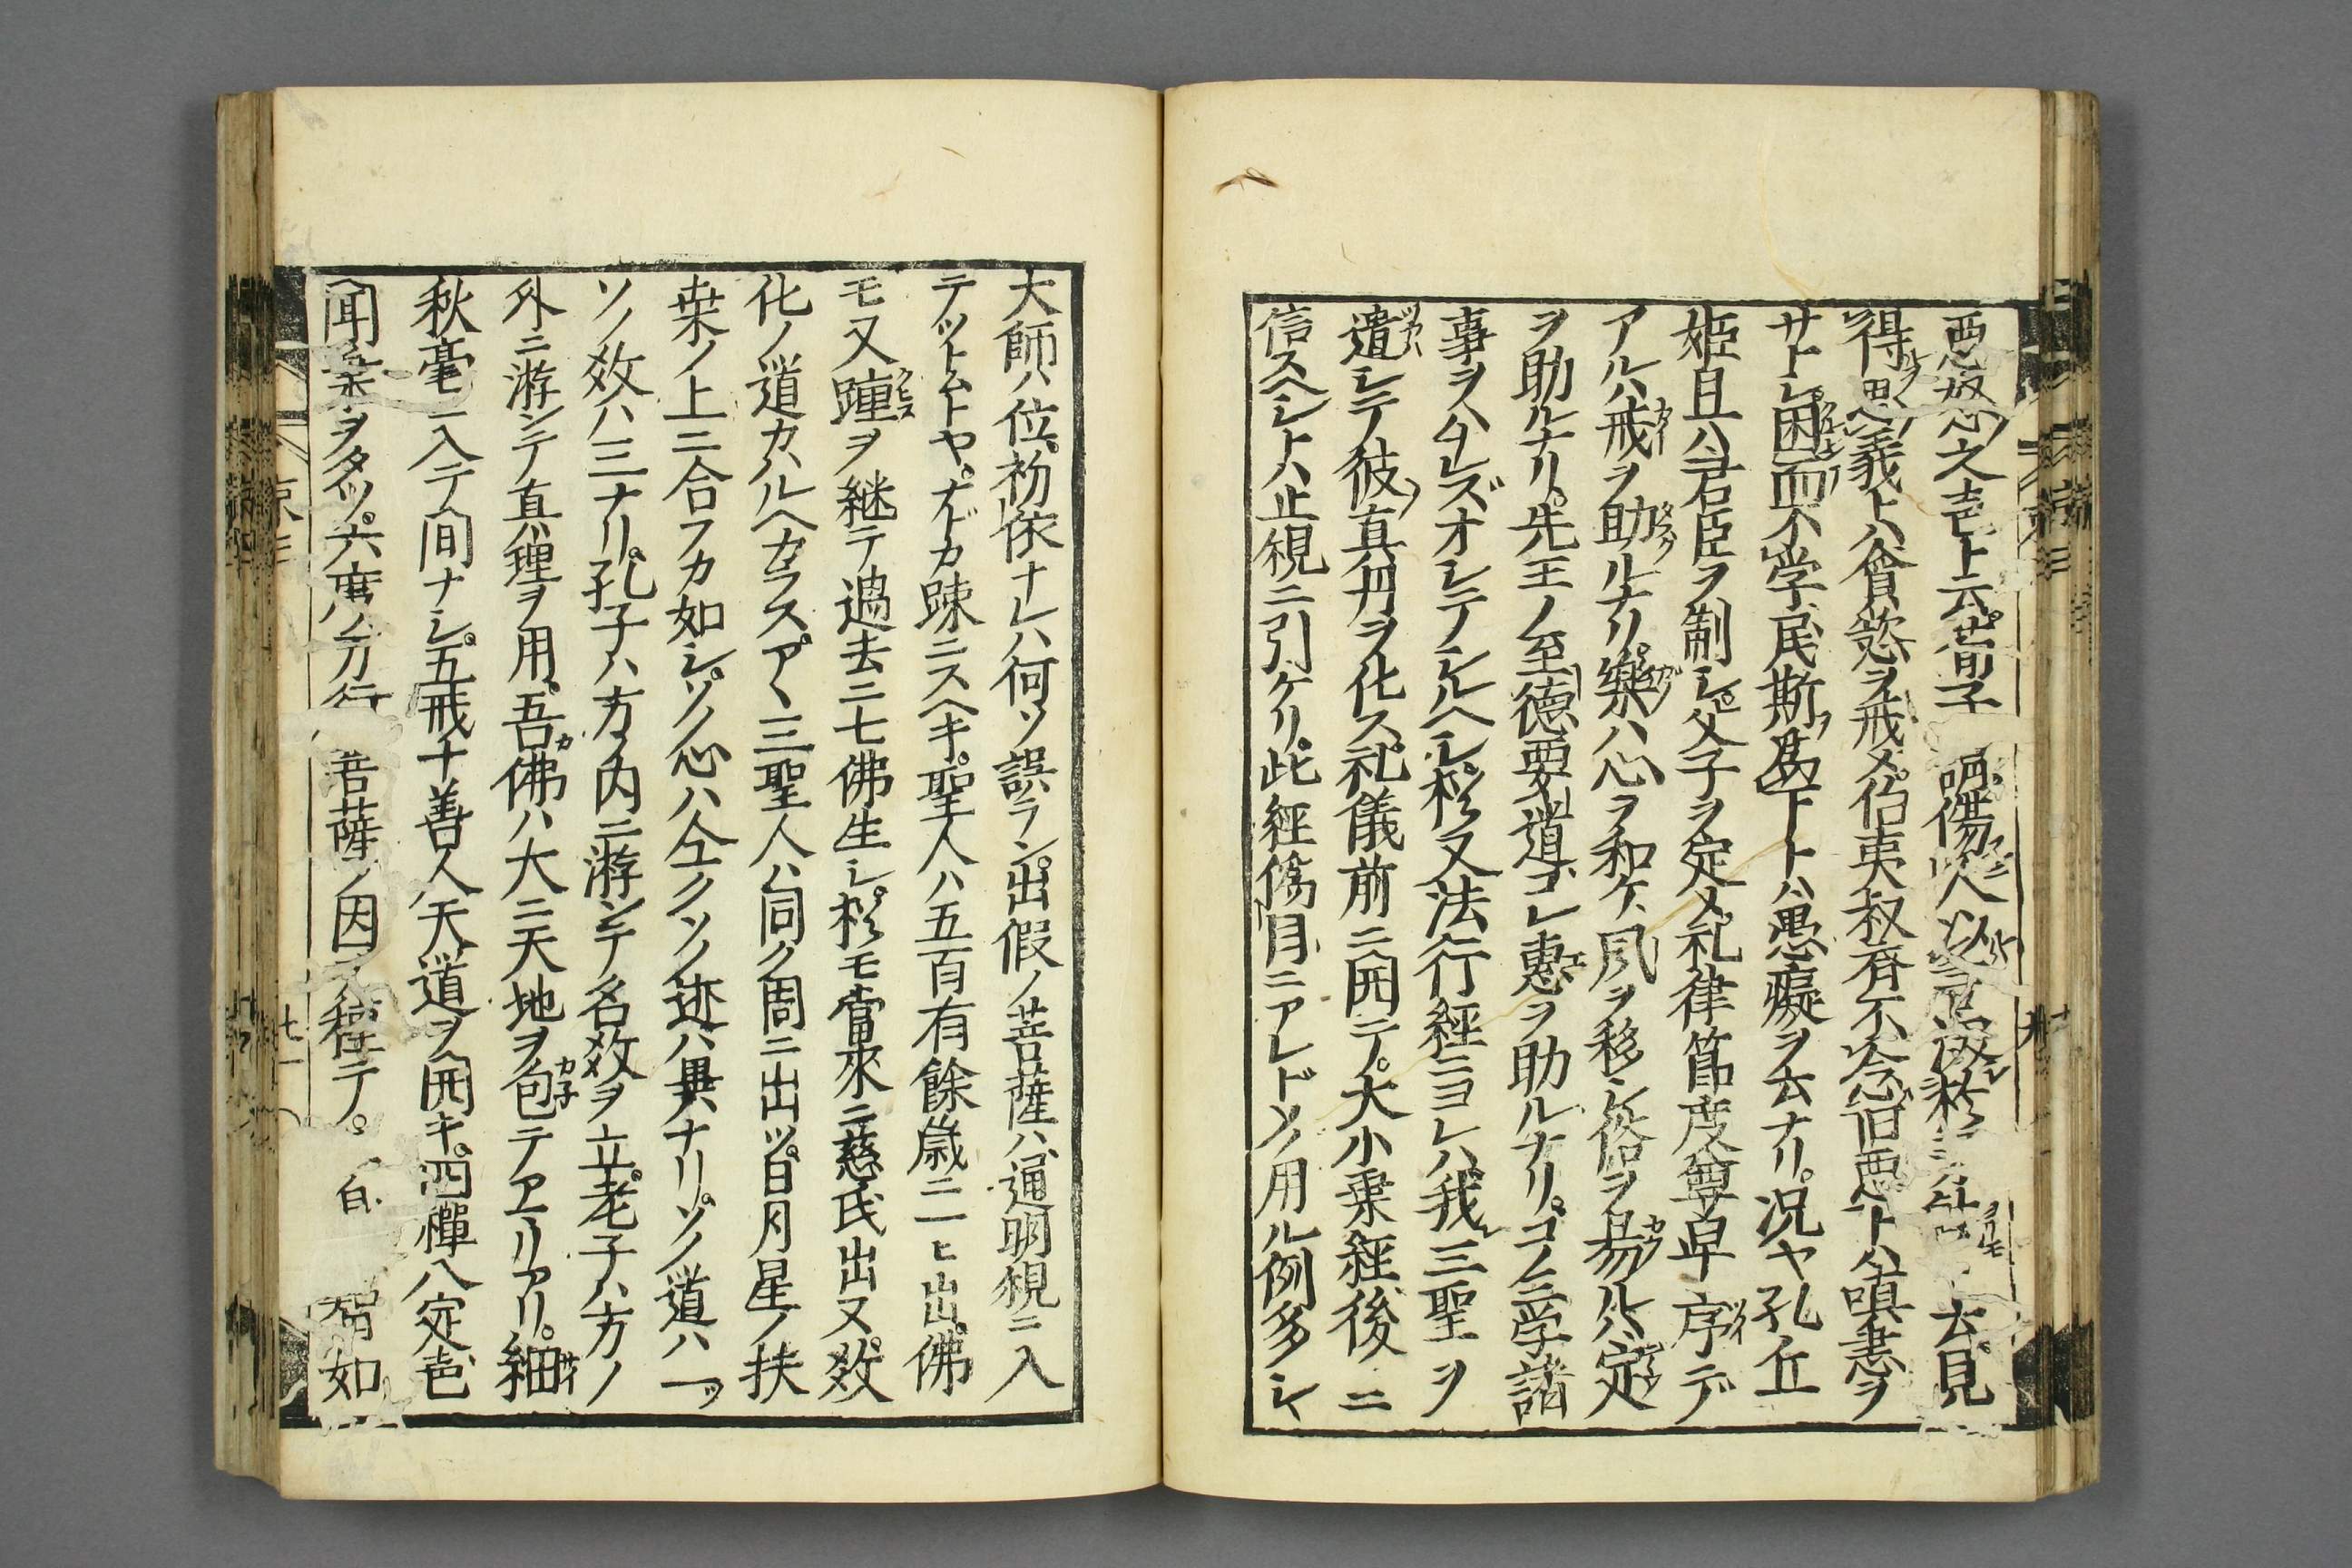 悪怒之壴ト云荀子 傷人以言 云見
得思義トハ貪慾ヲ戒メ伯夷叔斉不念旧悪トハ嗔恚ヲ
サトシ困而不学民斯為下トハ愚癡ヲ云ナリ况ヤ孔丘
姫旦ハ君臣ヲ制シ父子ヲ定メ礼律節度尊卑序デ
アルハ戒ヲ助ルナリ樂ハ心ヲ和ケ風ヲ移シ俗ヲ易ルハ定
ヲ助ルナリ先王ノ至德要道コレ惠ヲ助ルナリコノ三学諸
事ヲハナレズオシテノシルヘシ又法行經ニヨレハ我三聖ヲ
遣シテ彼真丹ヲ化ス礼儀前ニ開テ大小乗經後ニ
信スヘシトハ止観ニ引ケリ此經偽目ニアレドメ用ル例多シ
大師ハ位初依ナレハ何ソ誤ラン出假ノ菩薩ハ通明観ニ入
テツトムトヤナドカ疎ニスヘキ聖人ハ五百有餘歳ニ一ヒ出佛
モ又踵ヲ継テ過去ニ七佛生シモ當來ニ慈氏出又效
化ノ道カハルヘカラスアヽ三聖人ハ同ク周ニ出ツ日月星ノ扶
桒ノ上ニ合フカ如シソノ心ハ仝クソノ迹ハ異ナリソノ道ハ一ツ
ソノ效ハ三ナリ孔子ハ方ノ内ニ游ンテ名效ヲ立老子ハ方ノ
外ニ游ンテ真理ヲ用吾佛ハ大ニ天地ヲ包テアエリアリ細
秋毫ニ入テ間ナシ五戒十善人天道ヲ開キ四禪八定色
聞ヲタツ六度ノ万行 菩薩ノ因ヲ種テ 白 如